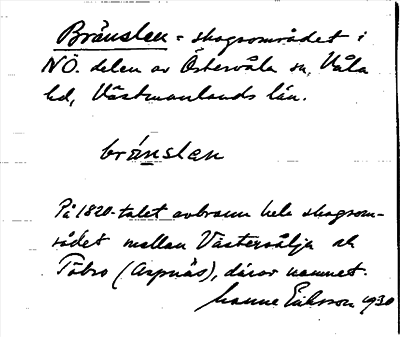 Bränslen = skogsområdet i
NÖ. delen av Östervåla sn, Våla
hd, Västmanlands län.
bränslen
På 1820-talet avbrann hela skogsom-
rådet mellan Västersälja ok
Tobro (Aspnäs), därav namnet.
Hanna Eriksson 1930